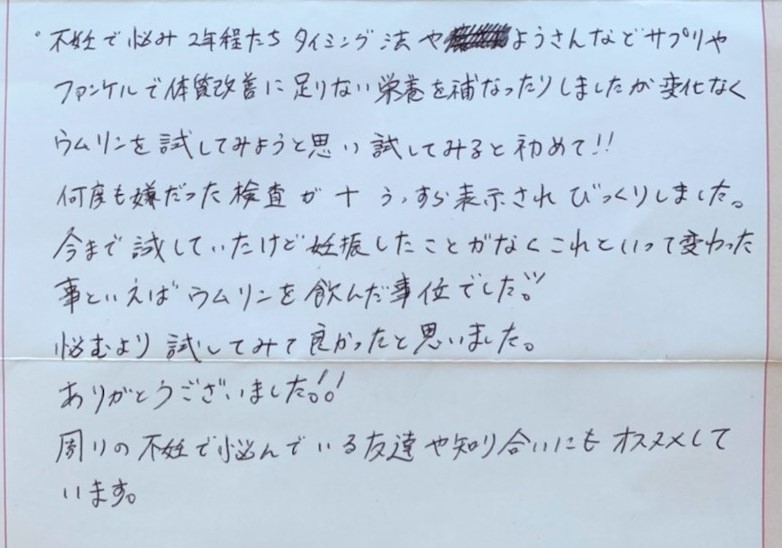 ・不妊で悩み 2年程たち タイミング法や ようさんなどサプリや
ファンケルで体質改善に足りない栄養を補なったりしましたが変化なく
ウムリンを試してみようと思い試してみると初めて!!
何度も嫌だった検査が + うっすら表示されびっくりしました。
今まで試していたけど妊娠したことがなくこれといって変わった
事といえばウムリンを飲んだ事位でした!!
悩むより試してみて良かったと思いました。
ありがとうございました!!
周りの不妊で悩んでいる友達や知り合いにもオススメして
います。